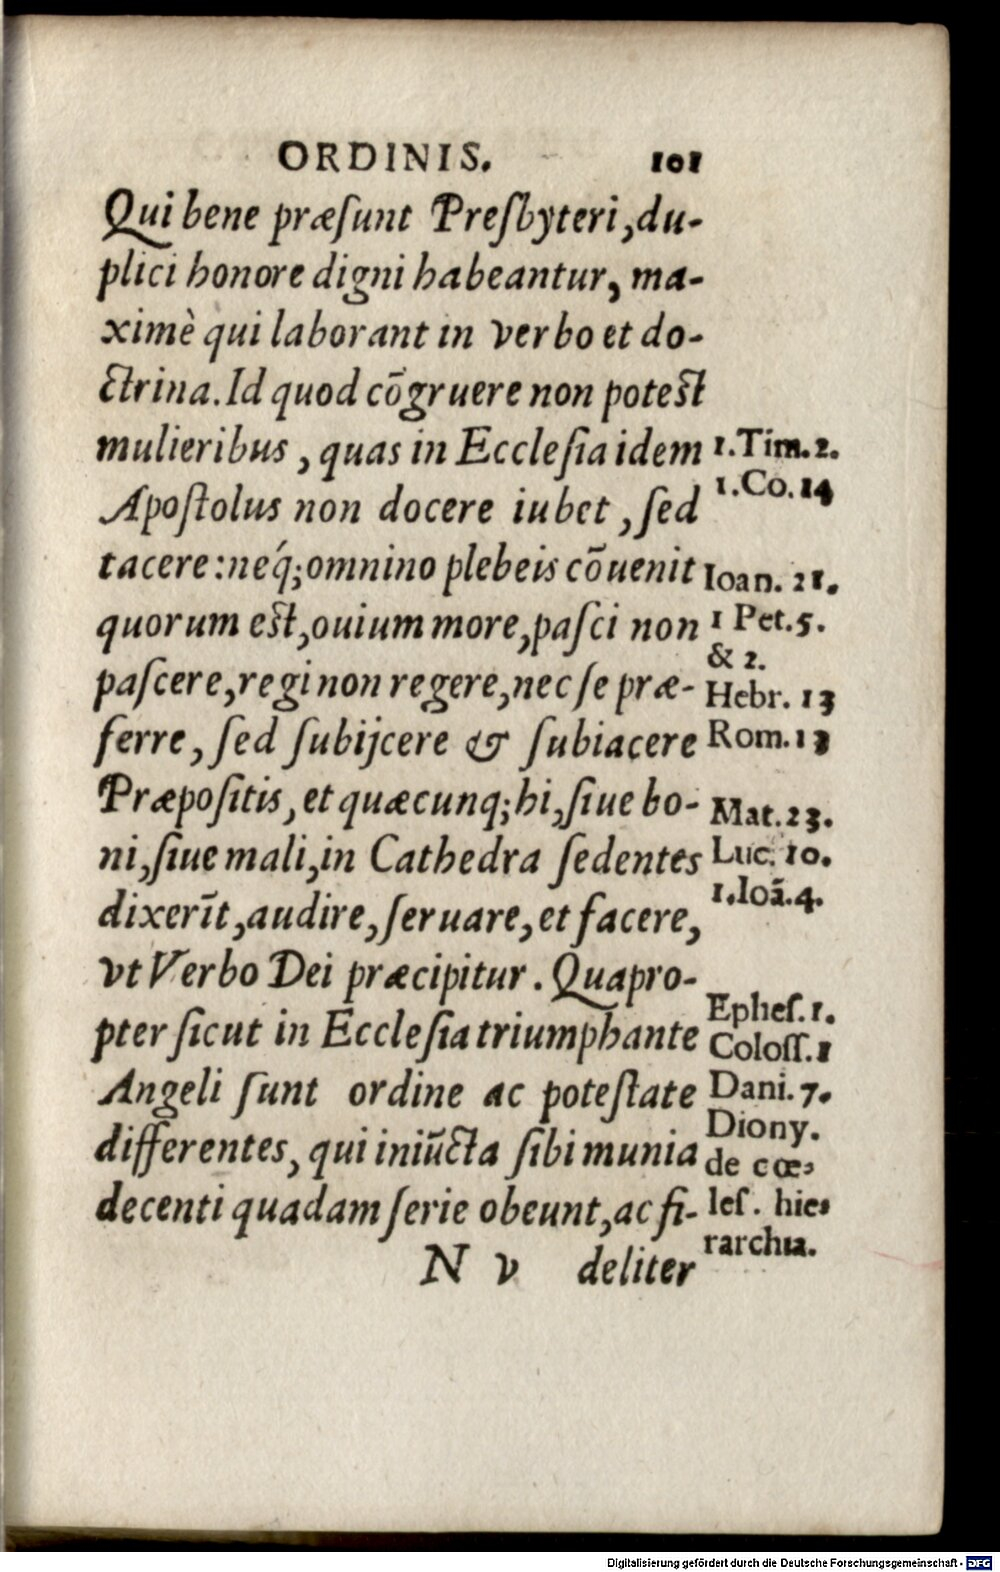 ORDINIS. 101
Qui bene præſunt Preſbyteri, du-
plici honore digni habeantur, ma-
ximè qui laborant in verbo et do-
ctrina. Id quod cõgruere non poteſt
mulieribus, quas in Eccleſia idem
Apoſtolus non docere iubet, ſed
tacere: neq́; omnino plebeis cõuenit
quorum eſt, ouium more, paſci non
paſcere, regi non regere, nec ſe præ-
ferre, ſed ſubijcere & ſubiacere
Præpoſitis, et quæcunq; hi, ſiue bo-
ni, ſiue mali, in Cathedra ſedentes
dixerĩt, audire, ſeruare, et facere,
vt Verbo Dei præcipitur. Quapro-
pter ſicut in Eccleſia triumphante
Angeli ſunt ordine ac poteſtate
differentes, qui iniũcta ſibi munia
decenti quadam ſerie obeunt, ac fi-
N v deliter
1.Tim.2.
1.Co.14
Ioan. 21.
1 Pet.5.
& 2.
Hebr. 13
Rom.13
Mat.23.
Luc. 10.
1.Ioã.4.
Epheſ.1.
Coloſſ.1
Dani.7.
Diony.
de cœ-
leſ. hie-
rarchia.
Digitalisierung gefördert durch die Deutsche Forschungsgemeinschaft - DFG